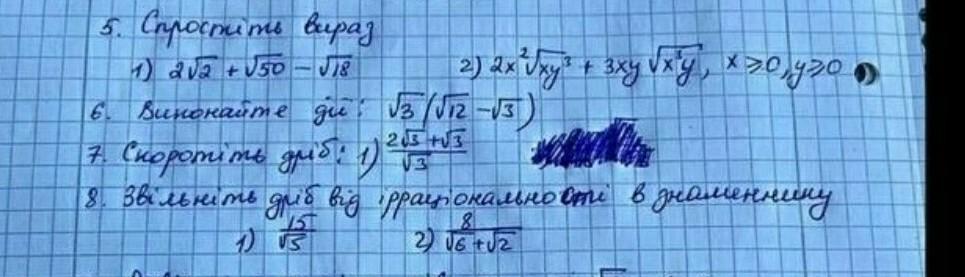 5. Спростіть вираз
1) 2√2 + √50 − √18 2) 2x²√xy³ + 3xy √x³y, x ⩾ 0, y ⩾ 0
6. Виконайте дії: √3 (√12 − √3)
7. Скоротіть дріб: 1) (2√3 + √3)/√3
8. Звільніть дріб від ірраціональності в знаменнику
1) 15/√5 2) 8/(√6 + √2)